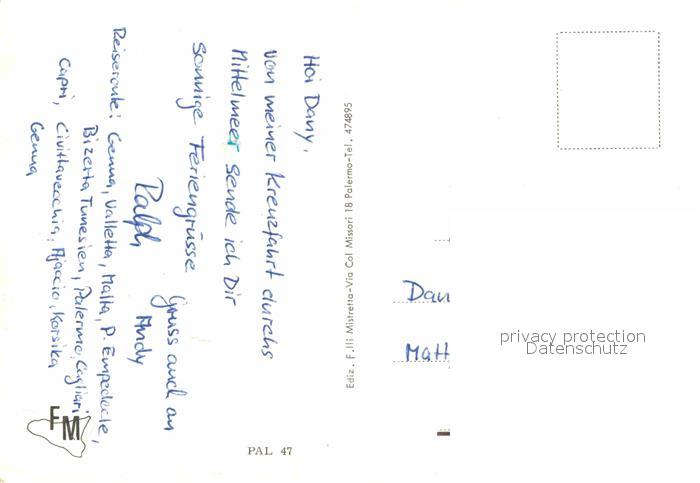 Hoi Dany,
von meiner Kreuzfahrt durchs
Mittelmeer sende ich Dir
Sonnige Feriengrüsse
Ralph
Gruss auch an
Andy
Reiseroute: Genua, Valletta, Malta, P. Empedocle,
Bizerta Tunesien, Palermo, Cagliari
Capri, Civittavecchia, Ajaccio, Korsika
Genua
FM
PAL 47
Ediz. F.lli Mistretta-Via Col Missori 18 Palermo-Tel. 474895
Dan
Matt
privacy protection
Datenschutz